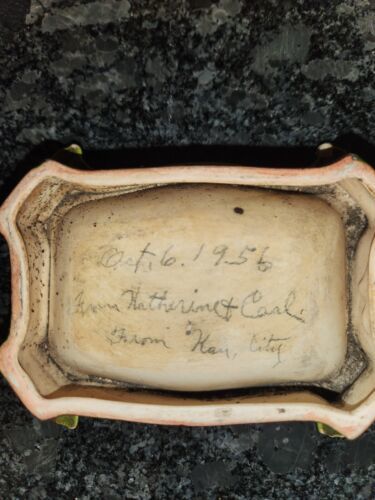 Oct, 6. 1956
From Katherine & Earl.
From Kan, City